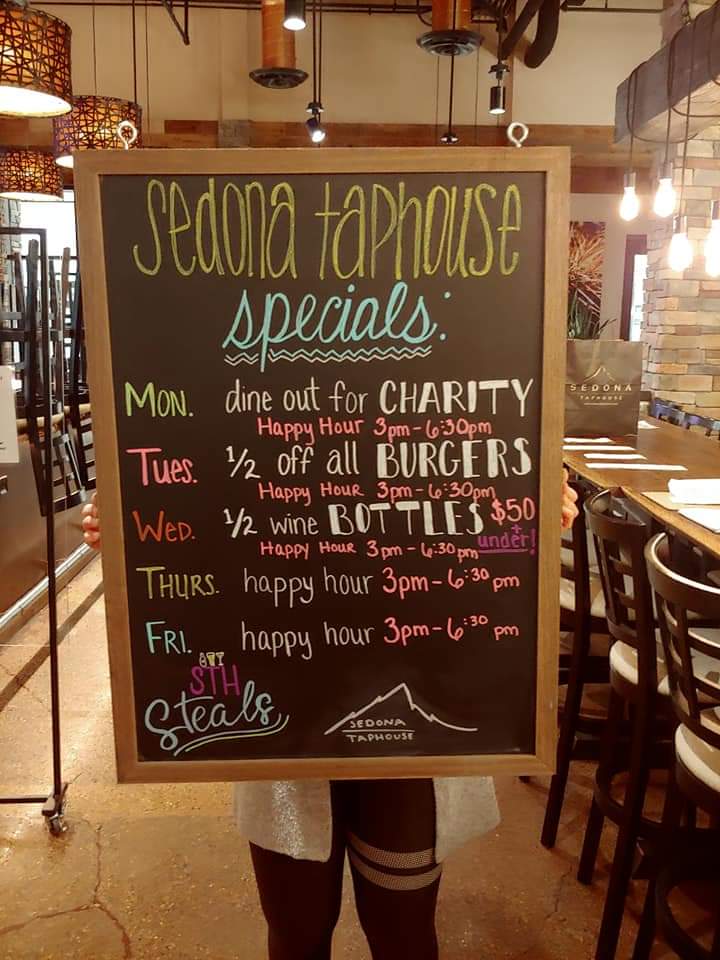 sedona taphouse
specials:
Mon. dine out for CHARITY
Happy Hour 3pm - 6:30pm
Tues. ½ off all BURGERS
Happy Hour 3pm - 6:30pm
Wed. ½ wine BOTTLES $50 + under!
Happy Hour 3pm - 6:30pm
Thurs. happy hour 3pm - 6:30 pm
Fri. happy hour 3pm - 6:30 pm
STH
Steals
SEDONA
TAPHOUSE
SEDONA
TAPHOUSE